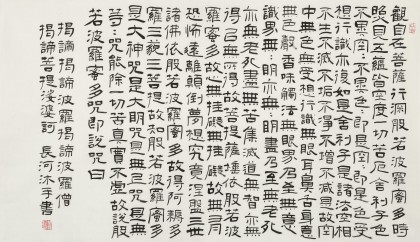 觀自在菩薩行深般若波羅蜜多時
照見五蘊皆空度一切苦厄舍利子色
不異空空不異色色即是空空即是色受
想行識亦復如是舍利子是諸法空相
不生不滅不垢不淨不增不減是故空
中無色無受想行識無眼耳鼻舌身意
無色聲香味觸法無眼界乃至無意
識界無無明亦無無明盡乃至無老死
亦無老死盡無苦集滅道無智亦無
得以無所得故菩提薩埵依般若波
羅蜜多故心無罣礙無罣礙故無有
恐怖遠離顛倒夢想究竟涅槃三世
諸佛依般若波羅蜜多故得阿耨多
羅三藐三菩提故知般若波羅蜜多
是大神咒是大明咒是無上咒是無
等等咒能除一切苦真實不虛故說般
若波羅蜜多咒即說咒曰
揭諦揭諦波羅揭諦波羅僧
揭諦菩提娑婆訶 長河沐手書